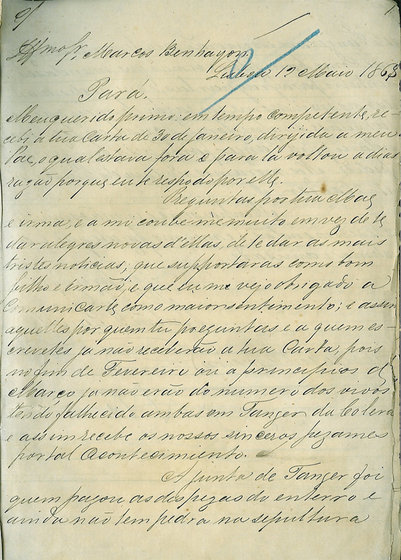 9/
Illmo Sr, Marcos Benhayon.
Lisboa 12 Maio 1863
Pará.
Meu querido primo: em tempo competente, re-
cebi a tua Carta de 30 de janeiro, dirijida a meu
Pae, o qual estava fora e para lá voltou a dias
razão porque eu te respondo por elle.
Preguntas por tua Mae
e irmã; e a mi couve-me muito em vez de te
dar alegres novas d'ellas, de te dar as mais
tristes noticias, que supportaras como bom
filho e irmão, e que eu me vejo obrigado a
Comunicarte, como maior sentimento; e assim
aquelles por quem tu preguntas e a quem es-
creveste já não receberão a tua Carta, pois
no fim de Fevereiro ou a principios de
Março já não erão do numero dos vivos
tendo falhecido ambas em Tanger da Colera
e assim recebe os nossos sinceros pezames
por tal Acontecimento.
A junta de Tanger foi
quem pagou as despezas do enterro e
ainda não tem pedra na sepultura